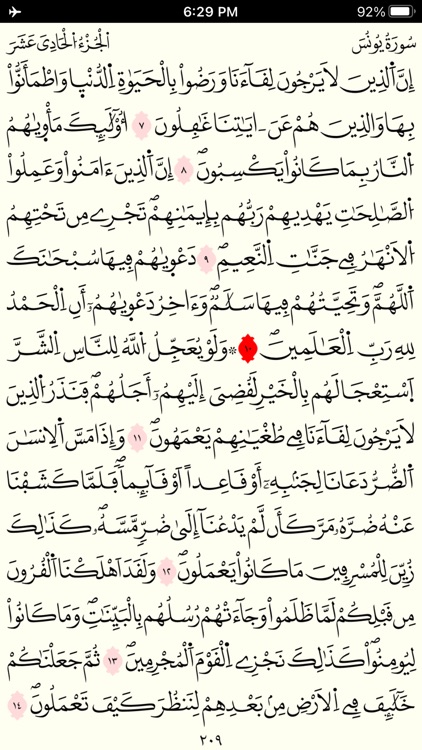 6:29 PM 92%
سُورَةُ يُونُسَ الْجُزْءُ الْحَادِى عَشَرَ
إِنَّ اَ۬لذِينَ لَا يَرْجُونَ لِقَآءَنَا وَرَضُواْ بِالْحَيَوٰةِ اِ۬لدُّنْي۪ا وَاطْمَأَنُّواْ
بِهَا وَالذِينَ هُمْ عَنَ اٰيَٰتِنَا غَٰفِلُونَ ٧ أُوْلَٰٓئِكَ مَأْوٜيٰهُمُ
اُ۬لنَّارُ بِمَا كَانُواْ يَكْسِبُونَۖ ٨ إِنَّ اَ۬لذِينَ ءَامَنُواْ وَعَمِلُواْ
اُ۬لصَّٰلِحَٰتِ يَهْدِيهِمْ رَبُّهُم بِإِيمَٰنِهِمْۖ تَجْرِے مِن تَحْتِهِمُ
اُ۬لَانْهَٰرُ فِے جَنَّٰتِ اِ۬لنَّعِيمِۖ ٩ دَعْوٜيٰهُمْ فِيهَا سُبْحَٰنَكَ
اَ۬للَّهُمَّۖ وَتَحِيَّتُهُمْ فِيهَا سَلَٰمٞۖ وَءَاخِرُ دَعْوٜيٰهُمُۥٓ أَنِ اِ۬لْحَمْدُ
لِلهِ رَبِّ اِ۬لْعَٰلَمِينَۖ ١٠ ۞وَلَوْ يُعَجِّلُ اُ۬للَّهُ لِلنَّاسِ اِ۬لشَّرَّ
اَ۪سْتِعْجَالَهُم بِالْخَيْرِ لَقُضِىَ إِلَيْهِمُۥٓ أَجَلُهُمْۖ فَنَذَرُ اُ۬لذِينَ
لَا يَرْجُونَ لِقَآءَنَا فِے طُغْيَٰنِهِمْ يَعْمَهُونَۖ ١١ وَإِذَا مَسَّ اَ۬لِانسَٰنَ
اَ۬لضُّرُّ دَعَانَا لِجَنۢبِهِۦٓ أَوْ قَاعِداً اَوْ قَآئِماٗۖ فَلَمَّا كَشَفْنَا
عَنْهُ ضُرَّهُۥ مَرَّ كَأَن لَّمْ يَدْعُنَآ إِلَىٰ ضُرّٖ مَّسَّهُۥۖ كَذَٰلِكَ
زُيِّنَ لِلْمُسْرِفِينَ مَا كَانُواْ يَعْمَلُونَۖ ١٢ وَلَقَدَ اَهْلَكْنَا اَ۬لْقُرُونَ
مِن قَبْلِكُمْ لَمَّا ظَلَمُواْ وَجَآءَتْهُمْ رُسُلُهُم بِالْبَيِّنَٰتِۖ وَمَا كَانُواْ
لِيُومِنُواْۖ كَذَٰلِكَ نَجْزِے اِ۬لْقَوْمَ اَ۬لْمُجْرِمِينَۖ ١٣ ثُمَّ جَعَلْنَٰكُمْ
خَلَٰٓئِفَ فِے اِ۬لَارْضِ مِنۢ بَعْدِهِمْ لِنَنظُرَ كَيْفَ تَعْمَلُونَۖ ١٤
٢٠٩